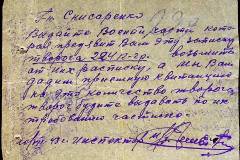 Гн Снисаренко
Выдайте Воен. части кото-
рая предъявит Вам эту расписку
творога 294 кг-гр. возьмите
от них расписку, а мы Вам
дадим приемную квитанцию
на это количество творога
творог будете выдавать по их
требованию частично.
инспектор